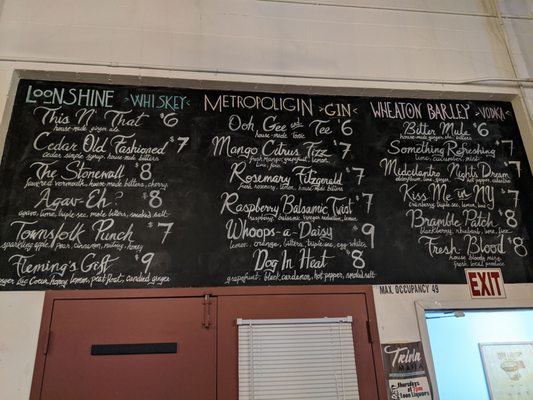 LOONSHINE >WHISKEY<
This N' That $6
house-made ginger ale
Cedar Old Fashioned $7
cedar simple syrup, house-made bitters
The Stonewall $8
house-made bitters, cherry
Agav-Eh? $8
agave, lime, triple sec, made bitters, smoked salt
Townsfolk Punch $7
sparkling apple, pear, cinnamon, nutmeg, honey
Fleming's Gift $9
honey, lemon, candied ginger
METROPOLIGIN >GIN<
Ooh Gee and Tee $6
house-made tonic
Mango Citrus Fizz $7
fresh mango, grapefruit, lemon
Rosemary Fitzgerald $7
fresh rosemary, lemon, house-made bitters
Raspberry Balsamic Twist $7
raspberry, balsamic vinegar reduction, lime
Whoops-a-Daisy $9
lemon, orange, bitters, triple-sec, egg whites
Dog In Heat $8
grapefruit, black cardamom, hot pepper, smoked salt
WHEATON BARLEY >VODKA<
Bitter Mule $6
house-made ginger, lime, bitters
Something Refreshing $7
lime, cucumber, mint
Midcitlantic Night's Dream $7
Kiss Me in NY $7
cranberry, triple sec, lime
Bramble Patch $8
blackberry, rhubarb, lime
Fresh Blood $8
house bloody mix,
fresh local produce
MAX. OCCUPANCY 49
EXIT
Trivia
MAFIA
Thursdays at
7pm
Loon Liquors